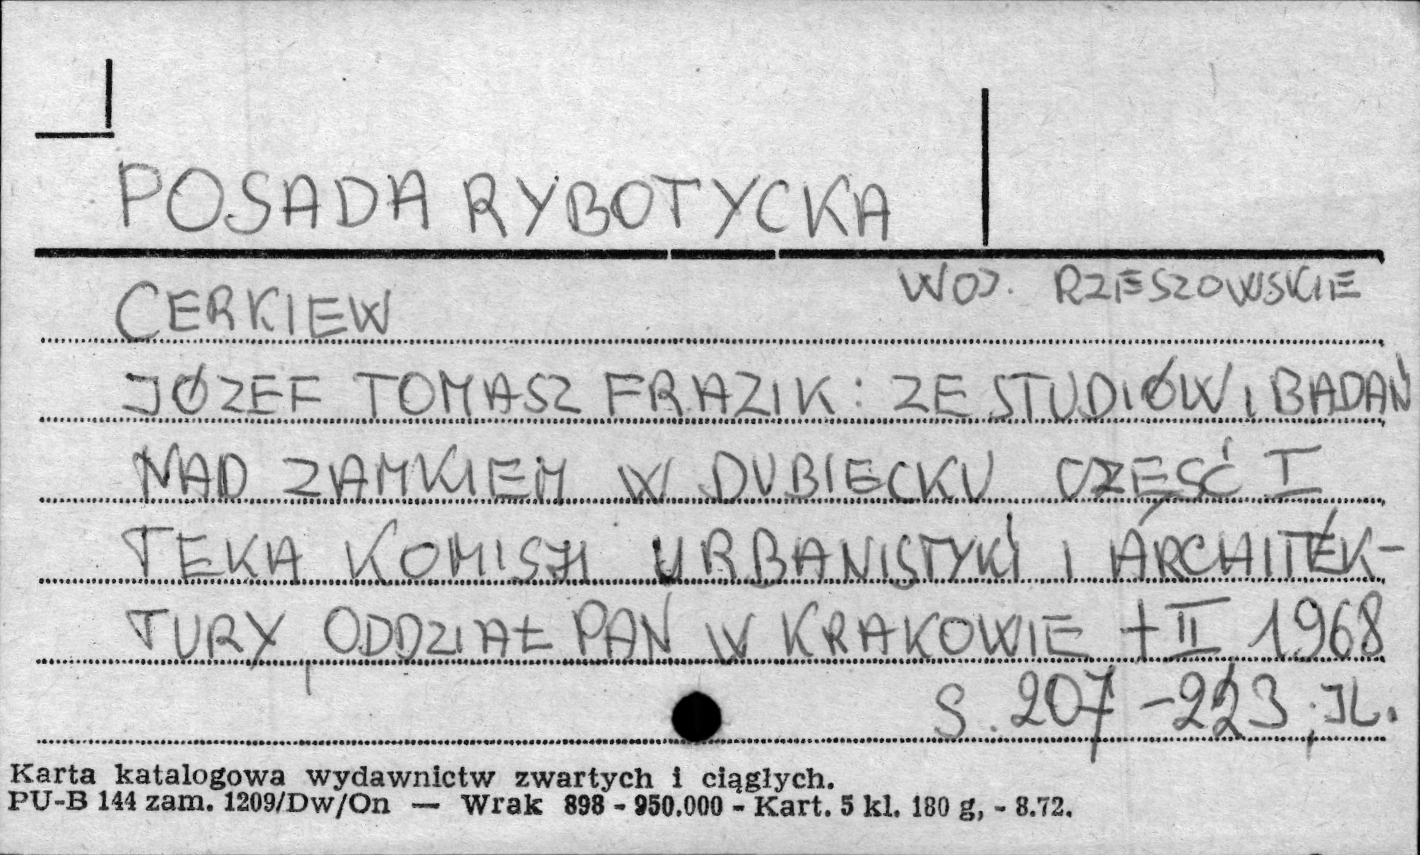 POSADA RYBOTYCKA
WOJ. RZESZOWSKIE
CERKIEW
JÓZEF TOMASZ FRAZIK: ZE STUDIÓW I BADAŃ
NAD ZAMKIEM W DUBIECKU CZĘŚĆ I
TEKA KOMISJI URBANISTYKI I ARCHITEK-
TURY ODDZIAŁ PAN W KRAKOWIE t II 1968
S. 207-223; IL.
Karta katalogowa wydawnictw zwartych i ciągłych.
PU-B 144 zam. 1209/Dw/On — Wrak 898 - 950.000 - Kart. 5 kl. 180 g, - 8.72.